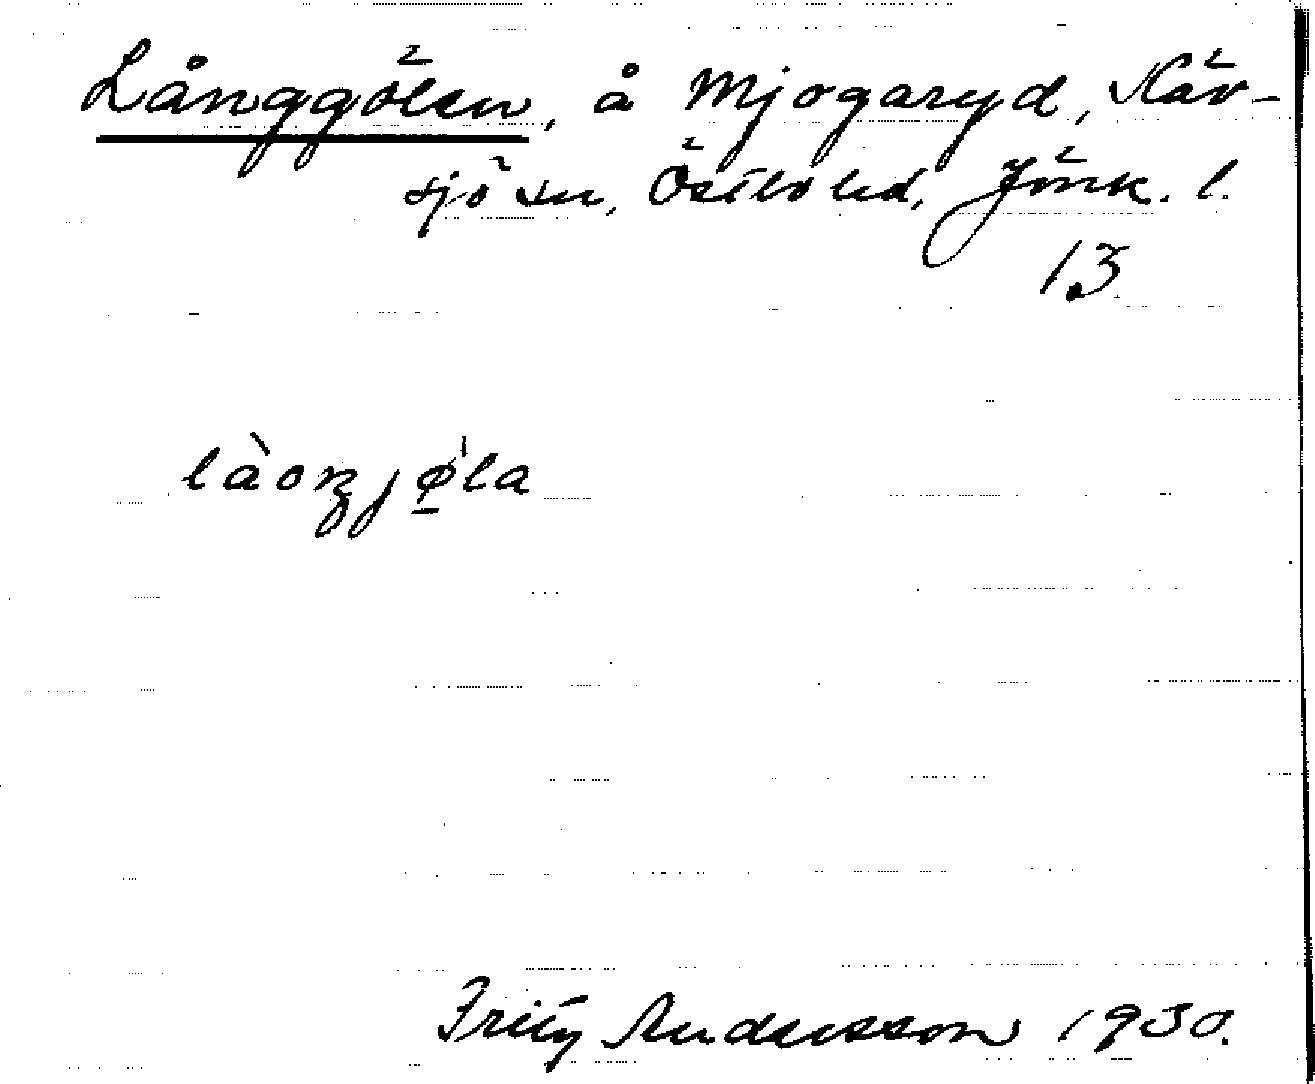 Långgölen, å Mjogaryd, Näv-
sjö sn, Östbo hd, Jönk. l.
13
Andersson 1930.